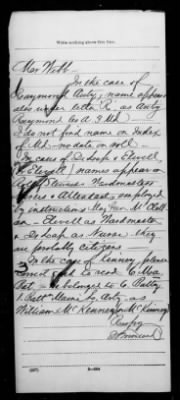 Write nothing above this line.
Mr. Webb.
In the case of
Raymond Auty, name appears
also under letter R. as Auty
Raymond Co A 3 Md
I do not find name on Index
of Md - no date on roll -
In cases of DeLoap & Elwell,
names appear on
Roll Stewards Wardmasters
Nurses & Attendants employed
by instructions
an - Elwell as Wardmaster
& DeLoap as Nurse - they
are probably citizens -
In the case of Kenney please
correct card to read 6 Mo.
Bat - he belonged to 6 Batty
1 Batt Maine L. Arty - as
William McKenney or McKinney